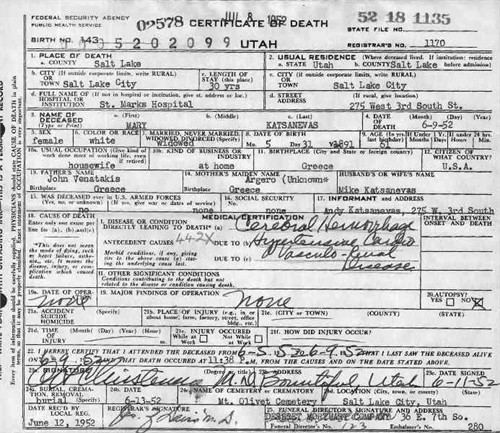 FEDERAL SECURITY AGENCY
PUBLIC HEALTH SERVICE
02578 CERTIFICATE OF DEATH JUL 8 1952 52 18 1135
STATE FILE NO.
BIRTH NO. 143 5202099 UTAH REGISTRAR'S NO. 1170
1. PLACE OF DEATH 2. USUAL RESIDENCE (Where deceased lived. If institution: residence before admission)
a. COUNTY Salt Lake a. STATE Utah b. COUNTY Salt Lake
b. CITY (If outside corporate limits, write RURAL) OR TOWN Salt Lake City c. LENGTH OF STAY (in this place) 30 yrs c. CITY (If outside corporate limits, write RURAL) OR TOWN Salt Lake City
d. FULL NAME OF (If not in hospital or institution, give st. address or loc.) HOSPITAL OR INSTITUTION St. Marks Hospital d. STREET ADDRESS (If rural, give location) 275 West 3rd South St.
3. NAME OF DECEASED a. (First) MARY b. (Middle) c. (Last) KATSANEVAS 4. DATE OF DEATH (Month) (Day) (Year) 6-9-52
5. SEX female 6. COLOR OR RACE white 7. MARRIED, NEVER MARRIED, WIDOWED, DIVORCED (Specify) widowed 8. DATE OF BIRTH 5 31 1891 9. AGE 61
10a. USUAL OCCUPATION (Give kind of work done most of working life, even if retired) housewife 10b. KIND OF BUSINESS OR INDUSTRY at home 11. BIRTHPLACE (City and State or foreign country) Greece 12. CITIZEN OF WHAT COUNTRY? U.S.A.
13. FATHER'S NAME John Venatakis 14. MOTHER'S MAIDEN NAME Argero (Unknown) HUSBAND'S OR WIFE'S NAME Mike Katsanevas
Birthplace Greece Birthplace Greece
15. WAS DECEASED EVER IN U.S. ARMED FORCES (Yes, no, or unknown) (If yes, give war or dates of service) none 16. SOCIAL SECURITY NO. none 17. INFORMANT Andy Katsanevas, 275 W. 3rd South
18. CAUSE OF DEATH MEDICAL CERTIFICATION INTERVAL BETWEEN ONSET AND DEATH
Enter only one cause per line for (a), (b), and (c)
I. DISEASE OR CONDITION DIRECTLY LEADING TO DEATH* (a) Cerebral Hemorrhage
ANTECEDENT CAUSES 442X DUE TO (b) Hypertensive Cardio
Morbid conditions, if any, giving rise to the above cause (a) stating the underlying cause last. DUE TO (c) Vasculo-renal Disease
*This does not mean the mode of dying, such as heart failure, asthenia, etc. It means the disease, injury, or complication which caused death.
II. OTHER SIGNIFICANT CONDITIONS
Conditions contributing to the death but not related to the disease or condition causing death.
19a. DATE OF OPERATION none 19b. MAJOR FINDINGS OF OPERATION None 20. AUTOPSY? YES NO X
21a. ACCIDENT SUICIDE HOMICIDE (Specify) 21b. PLACE OF INJURY (e.g., in or about home, farm, factory, street, office bldg., etc.) 21c. (CITY OR TOWN) (COUNTY) (STATE)
21d. TIME OF INJURY (Month) (Day) (Year) (Hour) 21e. INJURY OCCURRED While at Work Not While at Work 21f. HOW DID INJURY OCCUR?
22. I HEREBY CERTIFY THAT I ATTENDED THE DECEASED FROM 6-5, 1952 TO 6-9, 1952 THAT I LAST SAW THE DECEASED ALIVE
ON 6-9, 1952 AND THAT DEATH OCCURRED AT 11:38 P.M. FROM THE CAUSES AND ON THE DATE STATED ABOVE.
23a. SIGNATURE M.D. 23b. ADDRESS Bountiful Utah 23c. DATE SIGNED 6-11-52
24a. BURIAL, CREMATION, REMOVAL (Specify) burial 24b. DATE 6-13-52 24c. NAME OF CEMETERY OR CREMATORY Mt. Olivet Cemetery 24d. LOCATION (City, town, or county) (State) Salt Lake City, Utah
DATE REC'D BY LOCAL REG. June 12, 1952 REGISTRAR'S SIGNATURE 25. FUNERAL DIRECTOR'S SIGNATURE AND ADDRESS DESERET MORTUARY COMPANY 36 E. 7th So.
Funeral Director's No. 123 Embalmer's No. 280